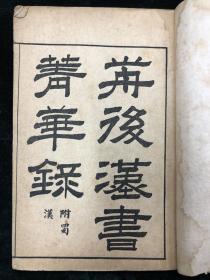 前後漢書
菁華錄
附蜀
漢